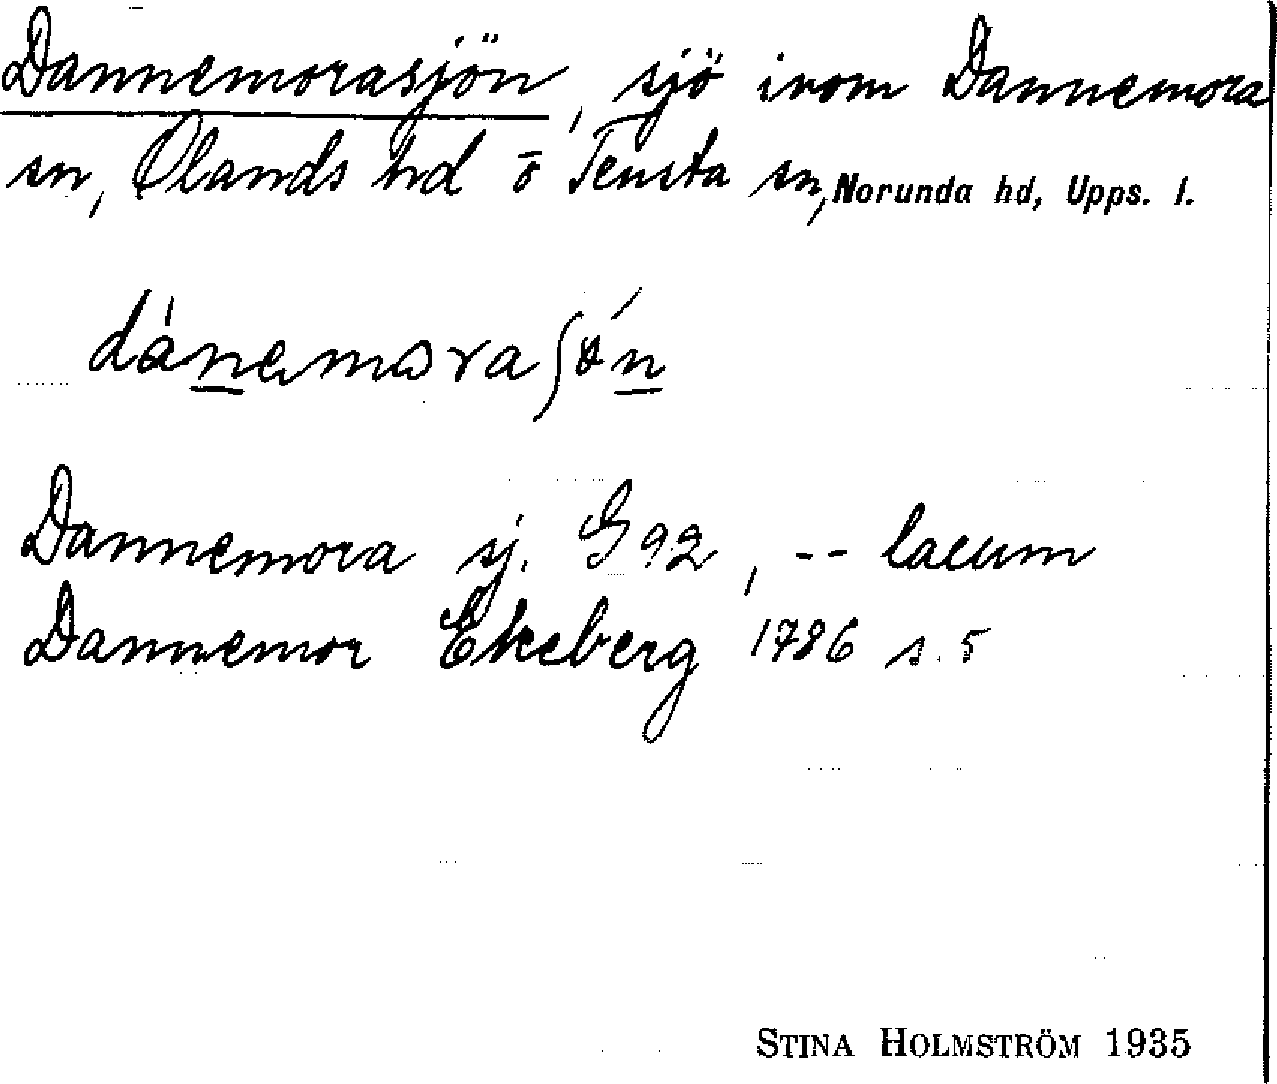 Dannemorasjön, sjö inom Dannemora
sn, Olands hd o Tensta sn, Norunda hd, Upps. l.
dánemoraʃön
Dannemora sj. G 92, -- lacum
Dannemor Ekeberg 1786 s. 5
STINA HOLMSTRÖM 1935